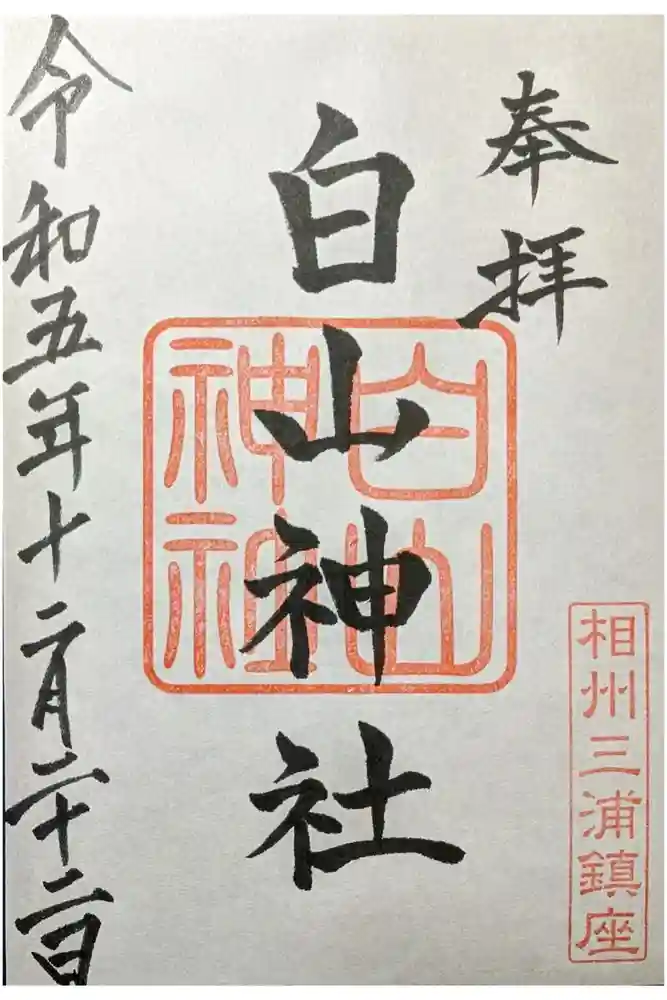 奉拝
相州三浦鎮座
白山神社
白山神社
令和五年十二月二十二日